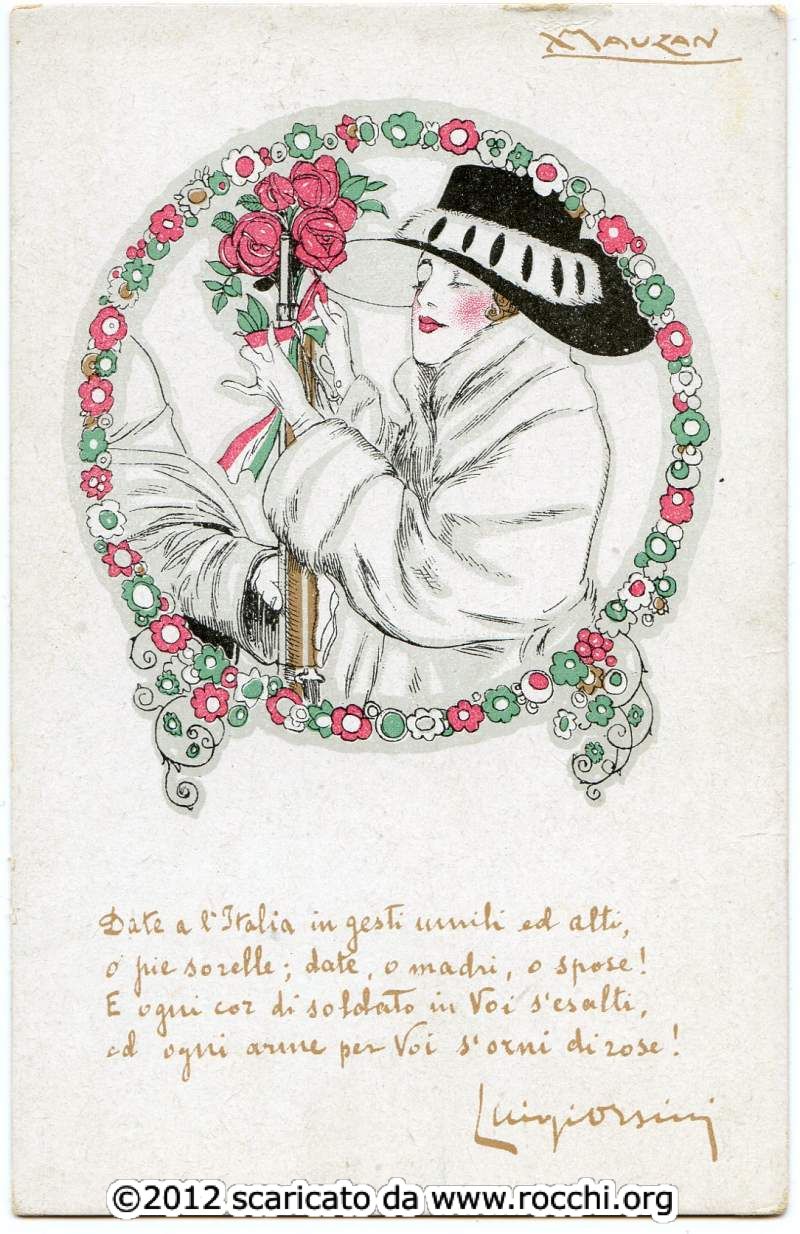 XMAUZAN
Date a l'Italia in gesti umili ed alti,
o pie sorelle; date, o madri, o spose!
E ogni cor di soldato in Voi s'esalti,
ed ogni arme per Voi s'orni di rose!
Luigi Orsini
©2012 scaricato da www.rocchi.org